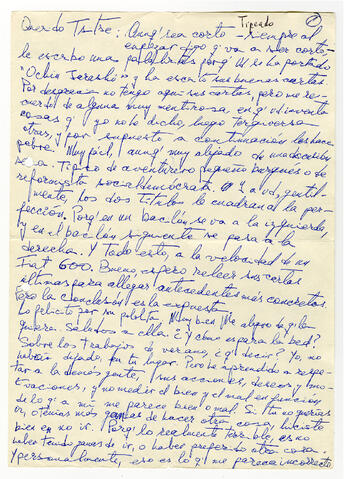 Tipeado
1
Querdo Titre: Aunq' sea corto - siempre al
empezar digo q' va a ser corto-
le escribo unas palabritas porq' Ud es ha portado
"Ochin Jarashó" y ha escrito sus buenas cartas.
Por desgracia no tengo aquí sus cartas, pero me re-
cuerdo de alguna muy mentirosa en q' ud inventa
cosas q' yo no he dicho, luego tergiversa
otras, y por supuesto a continuacion las hace
pebre. Muy fiel, aunq' muy alejado de
sea. Típico de aventurero pequeño burgués o de
reformista socialdemócrata. A ud, gentil-
mente, los dos títulos le cuadran a la per-
fección. Porq' en un bacilón se va a la izquierda
y en el bacilón siguiente se pasa a la
derecha. Y todo esto, a la velocidad de un
Fiat 600. Bueno, espero releer sus cartas
últimas para allegar antecedentes más concretos.
Pero la conclusion es la expuesta.
Lo felicito por su polola. Muy bien. Me alegro de q' la
quiera. Saludos a ella. ¿Y cómo espera la bed?
Sobre los trabajos de verano, ¿q' decir? Yo, no
habría dejado, en tu lugar. Pero he aprendido a respe-
tar a la demás gente, sus acciones, deseos y mo-
tivaciones, y no medir el bien y el mal en función
de lo q' a mí me parece bien o mal. Si tú no querías
ir, o tenías más ganas de hacer otra cosa, hiciste
bien en no ir. Porq' lo realmente terrible, es no
haber tenido ganas de ir, o haber preferido otra cosa.
Y personalmente, eso es lo q' me parece incorrecto